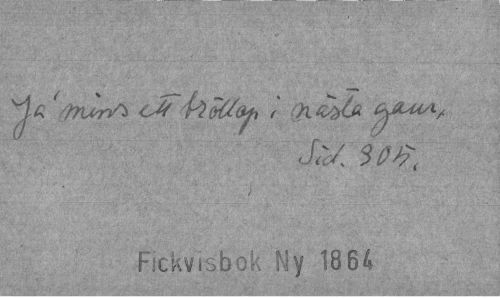 Já mins ett bröllop i nästa gaur,
Sid. 305.
Fickvisbok Ny 1864